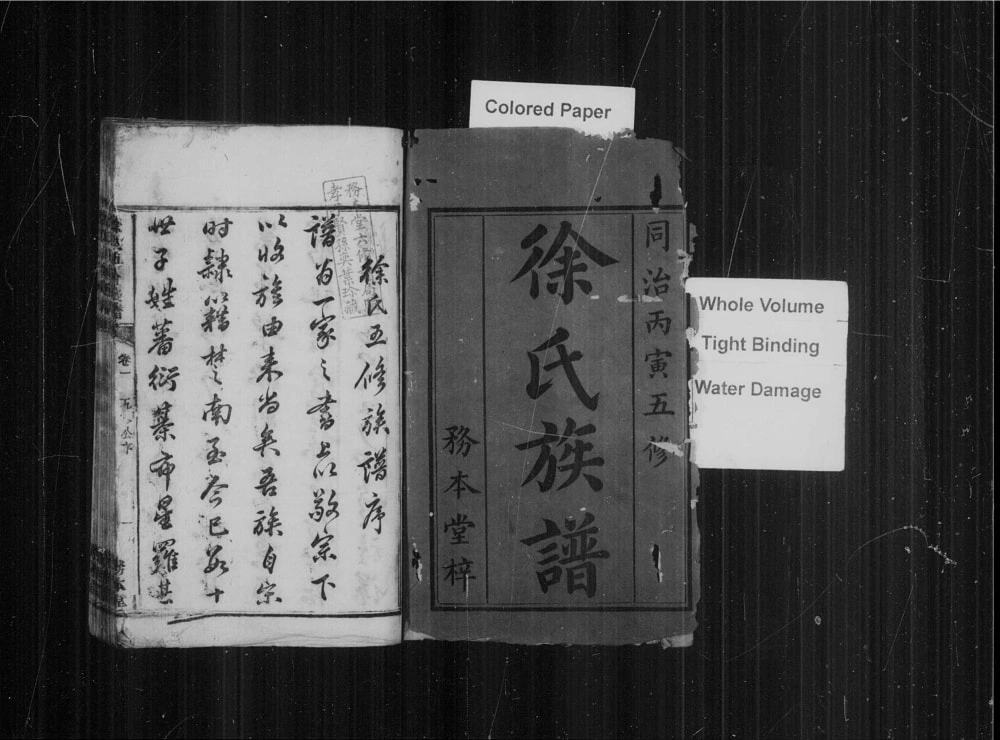 Colored Paper
Whole Volume
Tight Binding
Water Damage
同治丙寅五修
徐氏族譜
務本堂梓
徐氏五修族譜序
譜为一家之書上以敬宗下
以收族由来尚矣吾族自宋
时隸籍楚南至今已数十
世子姓蕃衍棊布星羅其
卷一